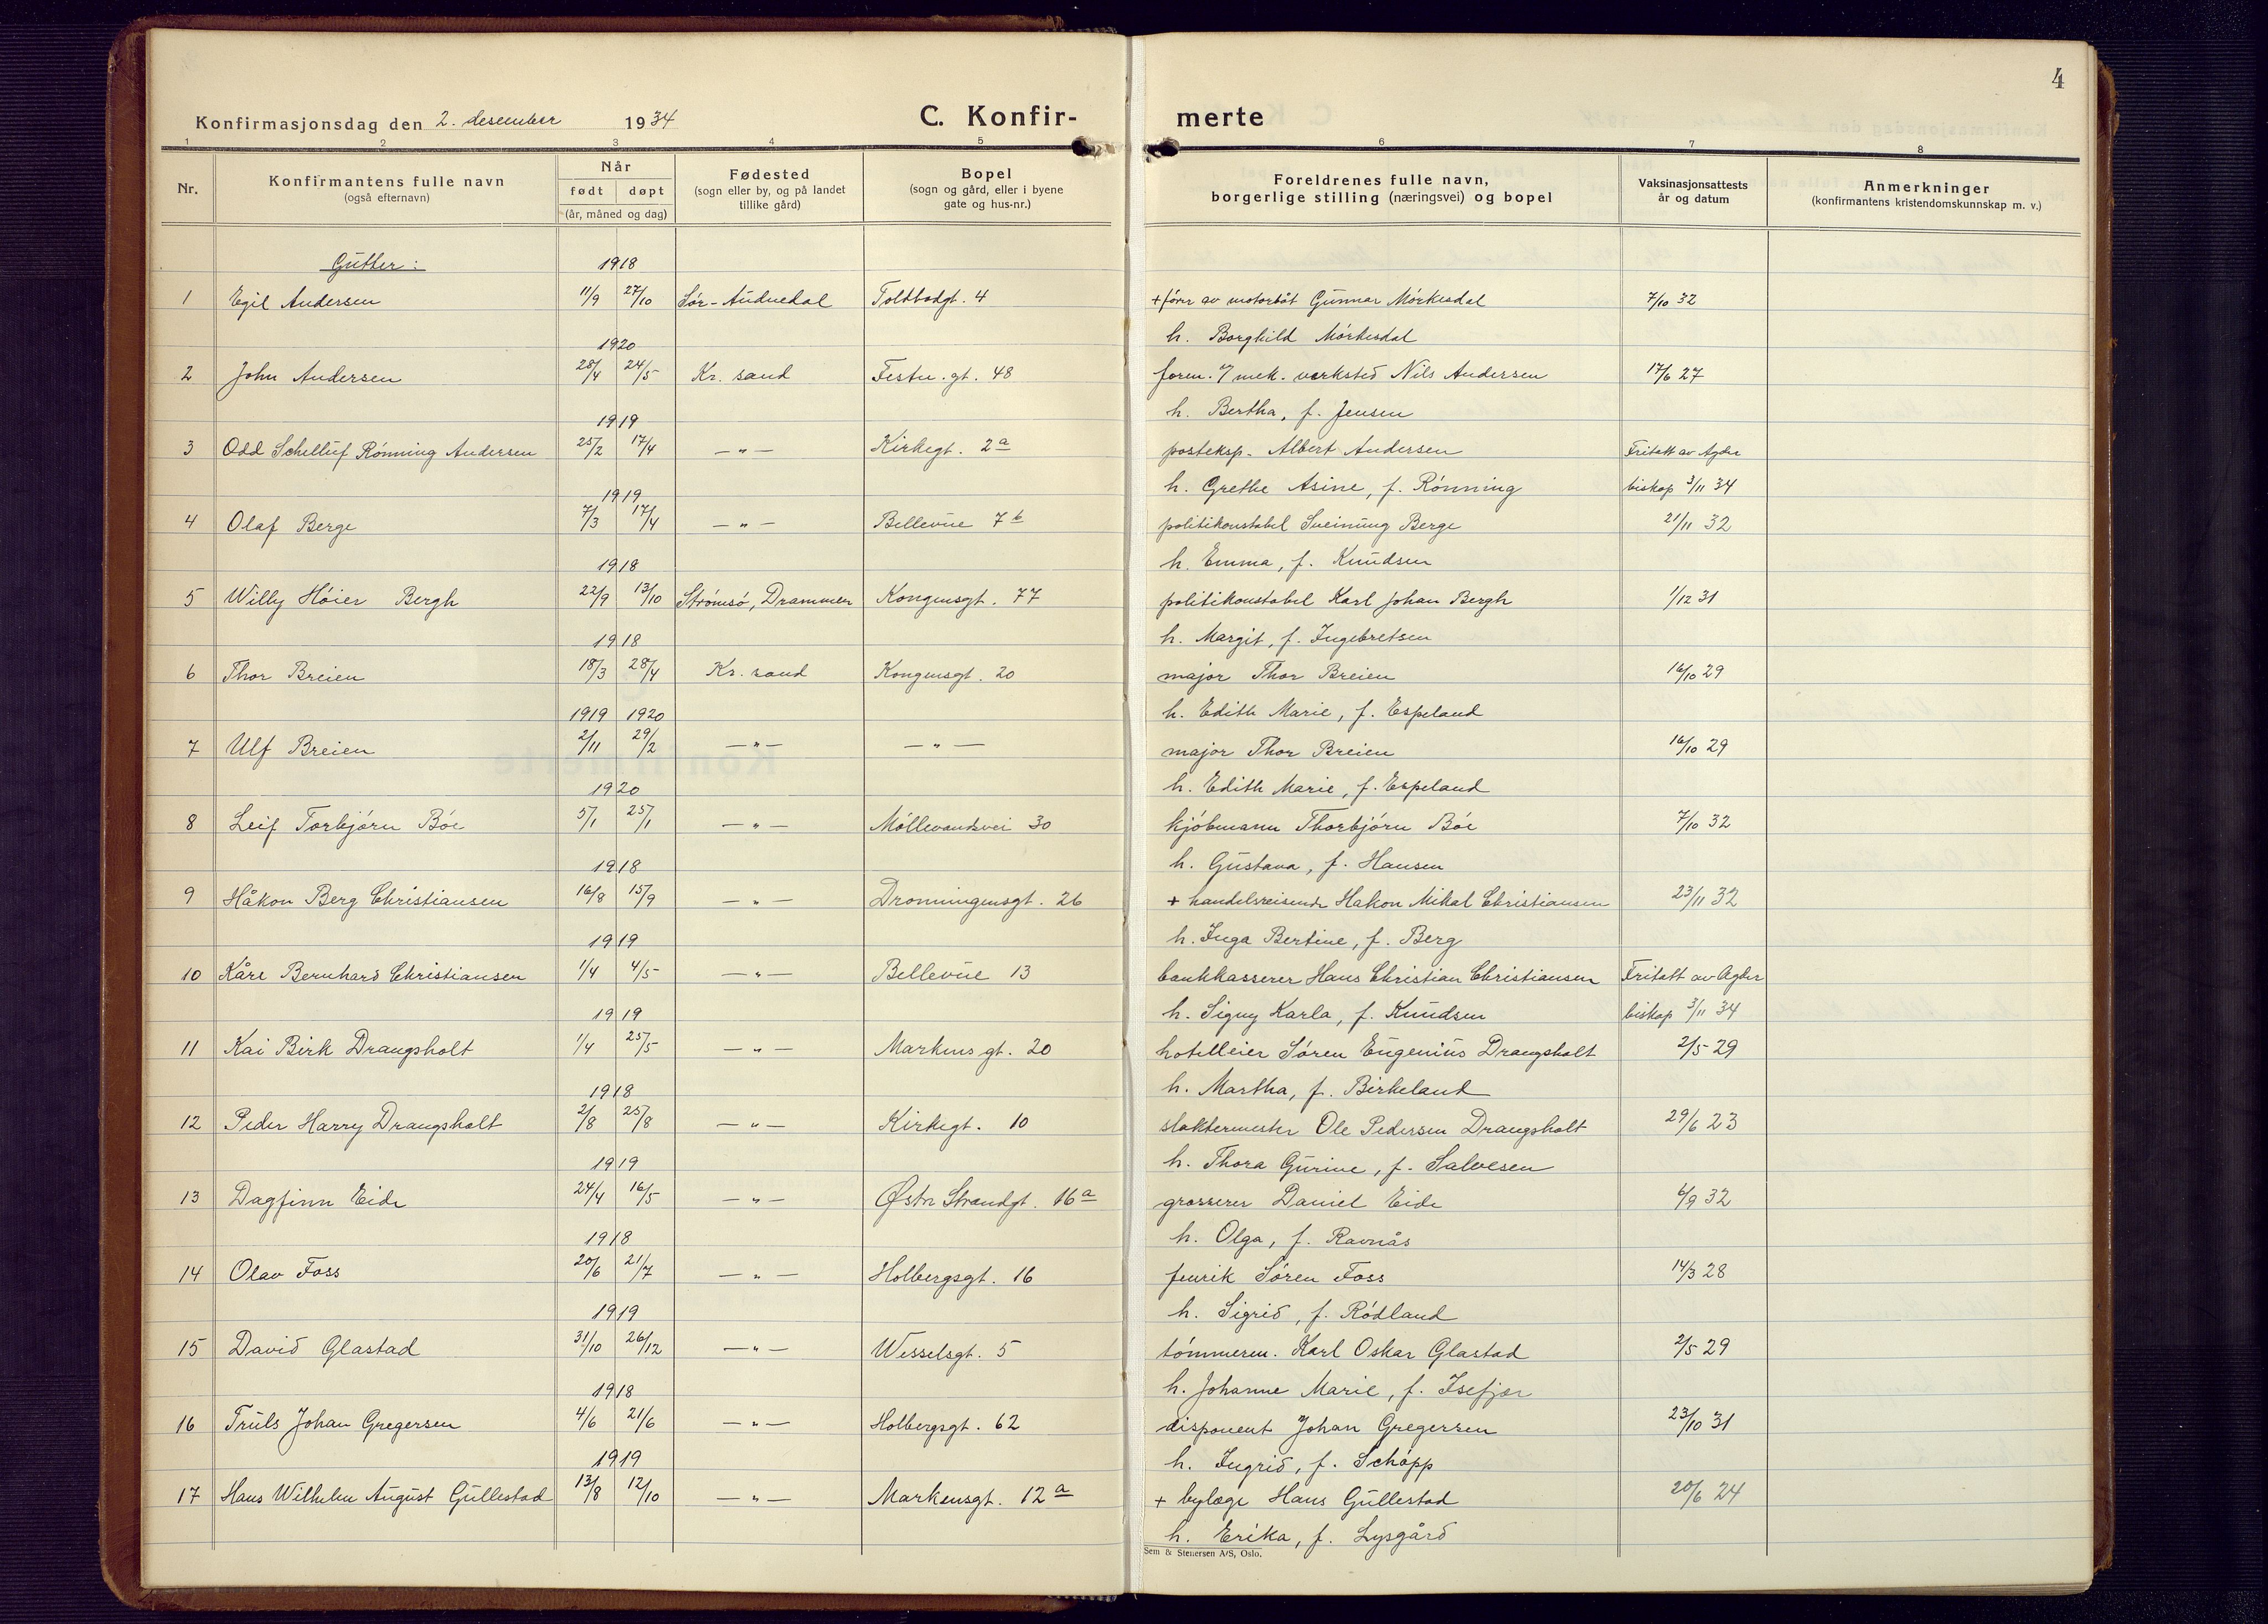 4
Konfirmasjonsdag den 2. desember 1934 C. Konfir- merte
1 2 3 4 5 6 7 8
Nr. Konfirmantens fulle navn (også efternavn) Når født døpt (år, måned og dag) Fødested (sogn eller by, og på landet tillike gård) Bopel (sogn og gård, eller i byene gate og hus-nr.) Foreldrenes fulle navn, borgerlige stilling (næringsvei) og bopel Vaksinasjonsattests år og datum Anmerkninger (konfirmantens kristendomskunnskap m. v.)
Gutter: 1918
1 Egil Andersen 11/9 27/10 Sør-Audnedal Toldbodgt. 4 + fører av motorbåt Gunnar Mørkesdal 7/10 32
h. Borghild Mørkesdal
1920
2 John Andersen 28/4 24/5 Kr. sand Festn.gt. 48 form. v/ mek. verksted Nils Andersen 17/6 27
h. Bertha, f. Jensen
1919
3 Odd Schelluf Rønning Andersen 25/2 17/4 — „ — Kirkegt. 2a posteksp. Albert Andersen Fritatt av Agder
h. Grethe Asine, f. Rønning biskop 3/11 34
1919
4 Olaf Berge 7/3 17/4 — „ — Bellevue 7b politikonstabel Sveinung Berge 21/11 32
h. Emma, f. Knudsen
1918
5 Willy Høier Bergh 22/9 13/10 Strømsø, Drammen Kongensgt. 77 politikonstabel Karl Johan Bergh 1/12 31
h. Margit, f. Ingebretsen
1918
6 Thor Breien 18/3 28/4 Kr. sand Kongensgt. 20 major Thor Breien 16/10 29
h. Edith Marie, f. Espeland
1919 1920
7 Ulf Breien 2/11 29/2 — „ — — „ — major Thor Breien 16/10 29
h. Edith Marie, f. Espeland
1920
8 Leif Torbjørn Bøe 5/1 25/1 — „ — Møllevandsvei 30 kjøbmann Thorbjørn Bøe 7/10 32
h. Gustava, f. Hansen
1918
9 Håkon Berg Christiansen 16/8 15/9 — „ — Dronningensgt. 26 + handelsreisende Hakon Mikal Christiansen 23/11 32
h. Inga Bertine, f. Berg
1919
10 Kåre Bernhard Christiansen 1/4 4/5 — „ — Bellevue 13 bankkasserer Hans Christian Christiansen Fritatt av Agder
h. Signy Karla, f. Knudsen biskop 3/11 34
1919
11 Kai Birk Drangsholt 1/4 25/5 — „ — Markensgt. 20 hotelleier Søren Eugenius Drangsholt 2/5 29
h. Martha, f. Birkeland
1918
12 Peder Harry Drangsholt 2/8 25/8 — „ — Kirkegt. 10 slaktermester Ole Pedersen Drangsholt 29/6 23
h. Thora Gurine, f. Salvesen
1919
13 Dagfinn Eide 24/4 16/5 — „ — Østre Strandgt. 16a grosserer Daniel Eide 6/9 32
h. Olga, f. Ravnås
1918
14 Olav Foss 20/6 21/7 — „ — Holbergsgt. 16 fenrik Søren Foss 14/3 28
h. Sigrid, f. Rødland
1919
15 David Glastad 31/10 26/12 — „ — Wesselsgt. 5 tømmerm. Karl Oskar Glastad 2/5 29
h. Johanne Marie, f. Isefjær
1918
16 Truls Johan Gregersen 4/6 21/6 — „ — Holbergsgt. 62 disponent Johan Gregersen 23/10 31
h. Ingrid, f. Schöpp
1919
17 Hans Wilhelm August Gullestad 13/8 12/10 — „ — Markensgt. 12a + bylæge Hans Gullestad 20/6 24
h. Erika, f. Lysgård
Sem & Stenersen A/S, Oslo.